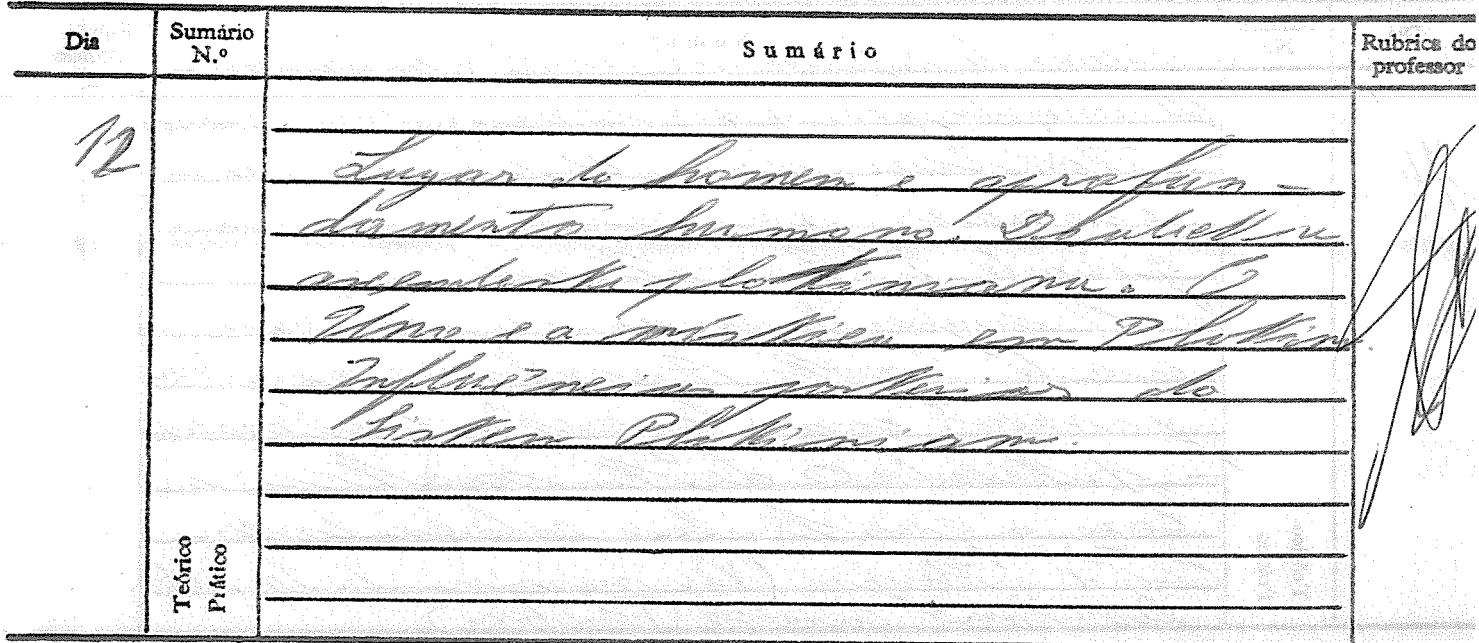 Dia Sumário N.º Sumário Rubrica do professor
12
Lugar do homem e aprofun-
damento humano. Dialectica
ascendente plotiniana. O
Uno e a mística em Plotino.
Influências posteriores do
Sistema Plotiniano.
Teórico
Prático